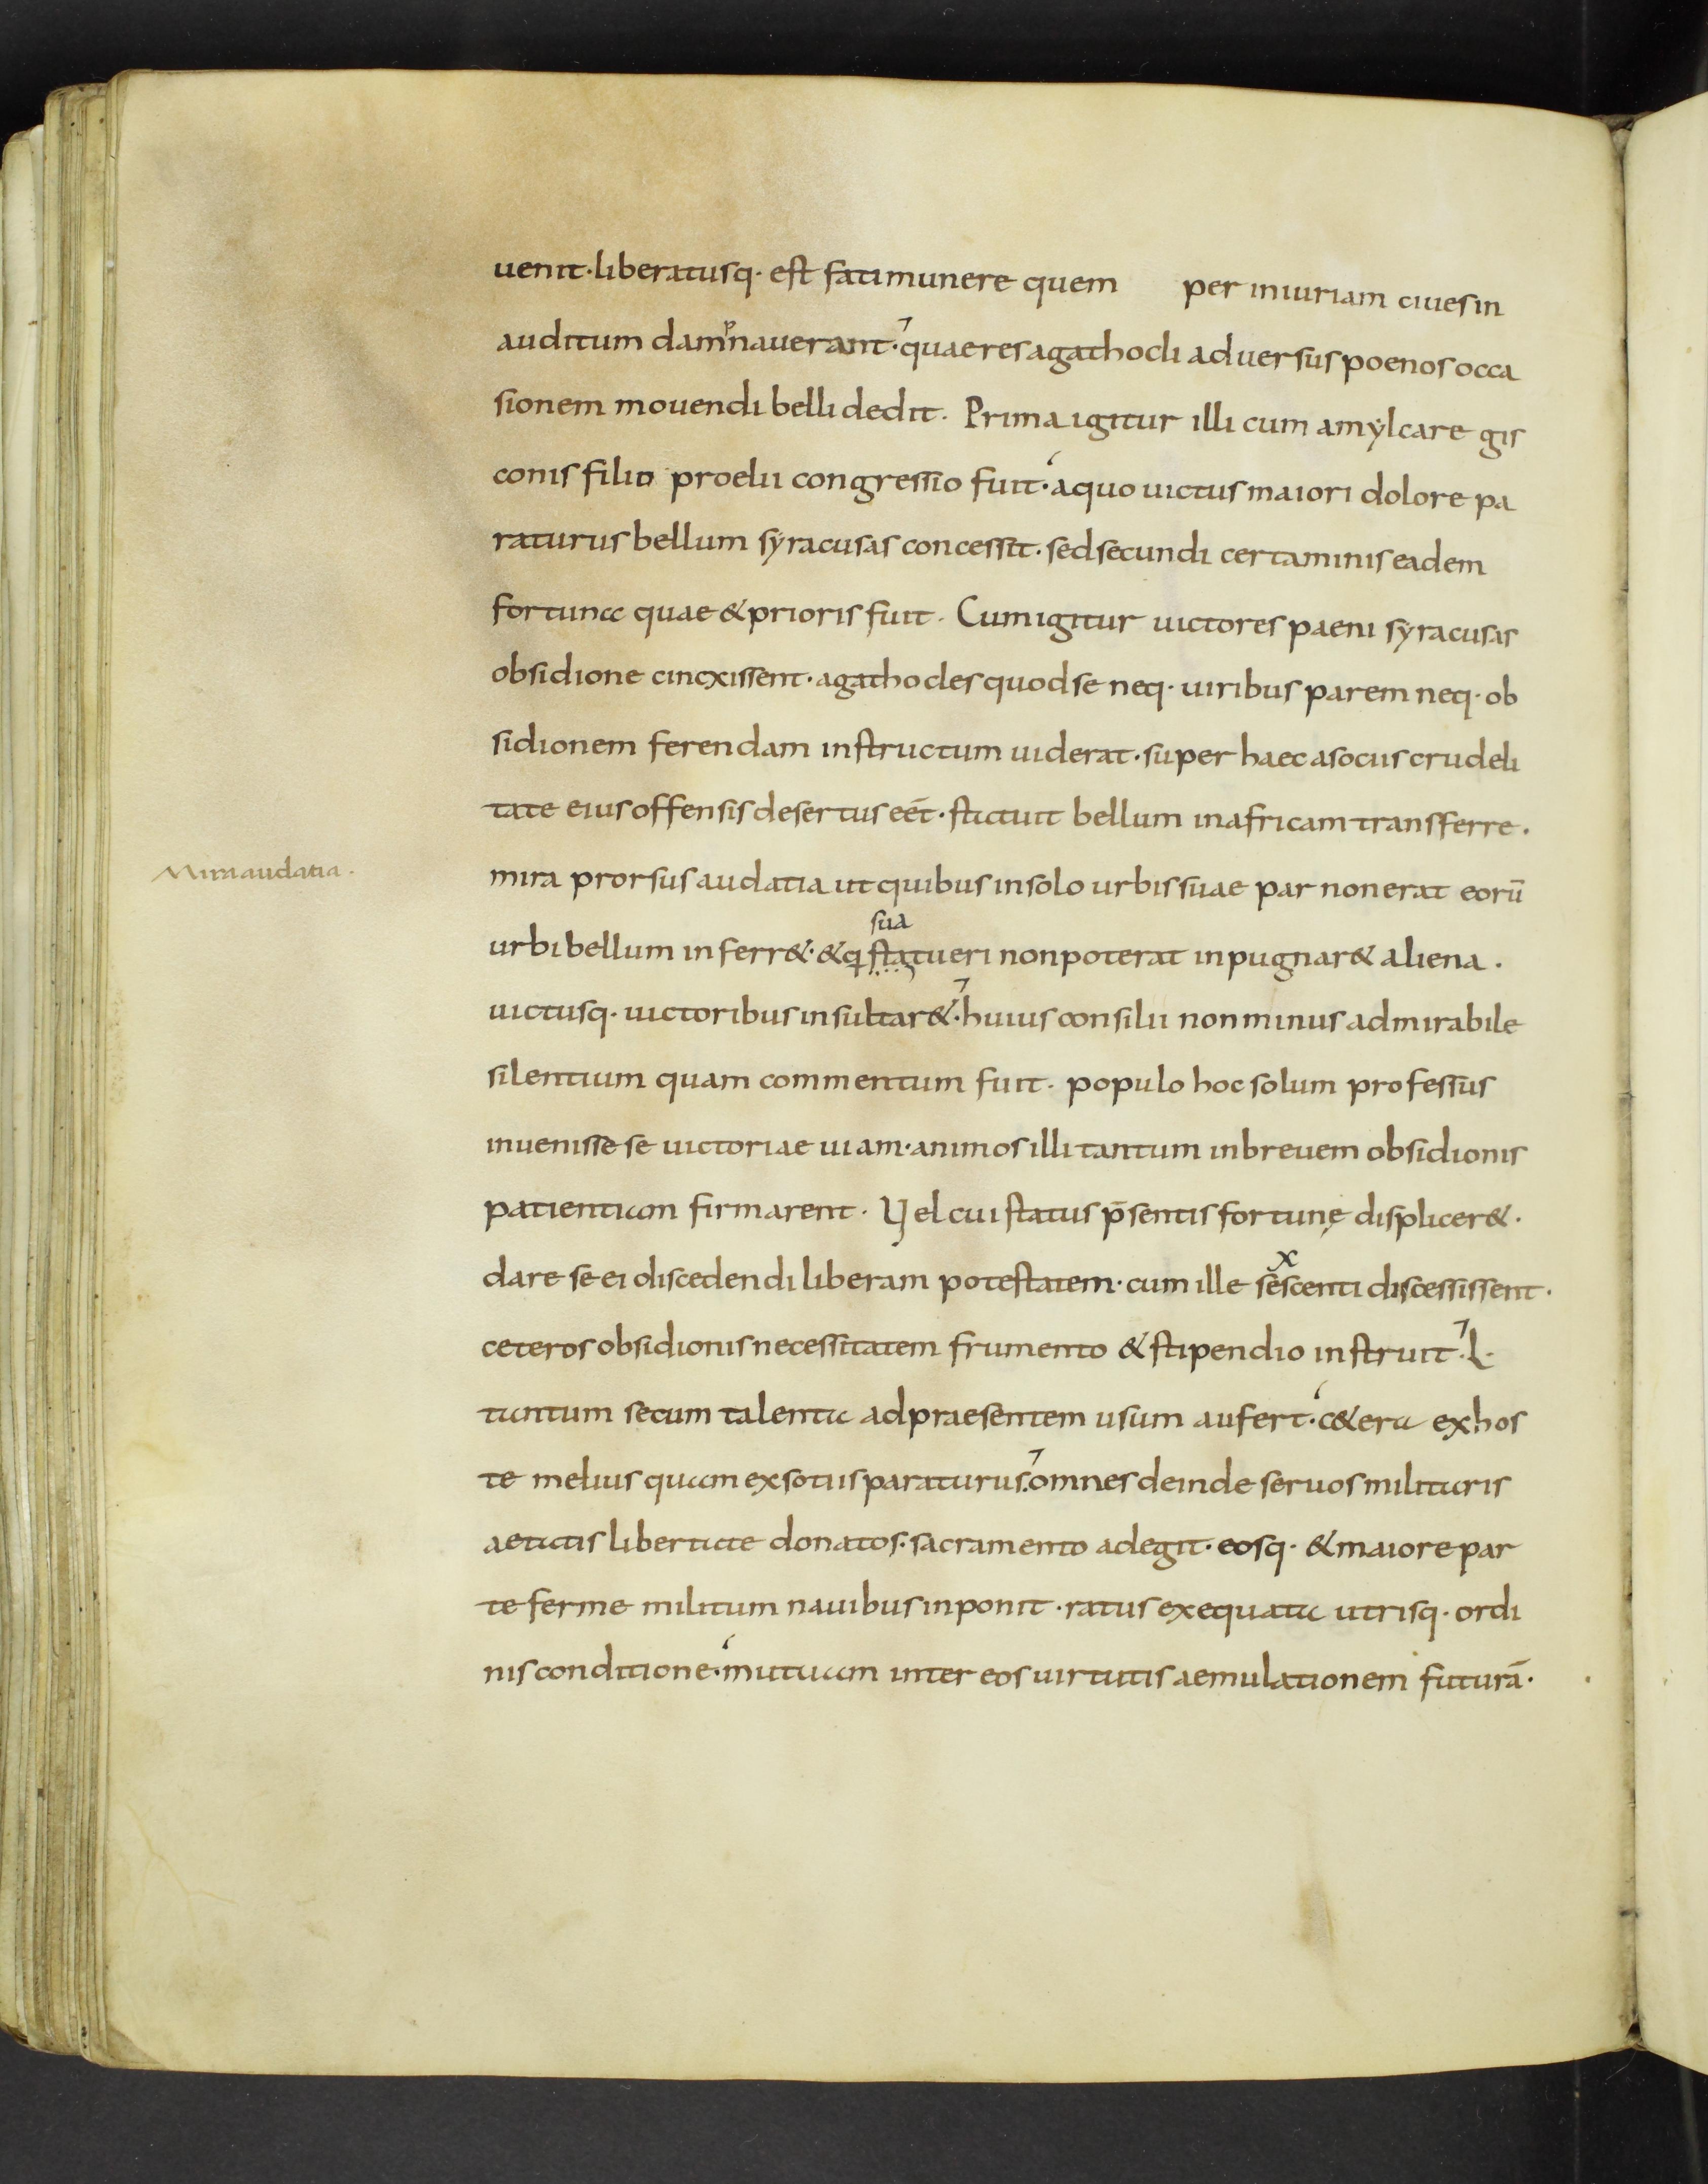 uenit·liberatusq· est fati munere quem per iniuriam ciues in
auditum dampnauerant· quae res agathocli aduersus poenos occa
sionem mouendi belli dedit. Prima igitur illi cum amylcare gis
conis filio proelii congressio fuit· a quo uictus maiori dolore pa
raturus bellum syracusas concessit· sed secundi certaminis eadem
fortuna quae & prioris fuit. Cum igitur uictores paeni syracusas
obsidione cincxissent· agathocles quod se neq· uiribus parem neq· ob
sidionem ferendam instructum uiderat· super haec a sociis crudeli
tate eius offensis desertus eēt· statuit bellum in africam transferre.
Mira audatia.
mira prorsus audatia ut quibus in solo urbis suae par non erat eorū
sua
urbi bellum inferr&· & q statueri non poterat inpugnar& aliena.
uictusq· uictoribus insultar&· huius consilii non minus admirabile
silentium quam commentum fuit· populo hoc solum professus
inuenisse se uictoriae uiam· animos illi tantum in breuem obsidionis
patientiam firmarent· Vel cui status p̄sentis fortunę displicer&·
x
dare se ei discedendi liberam potestatem· cum ille sescenti discessissent·
ceteros obsidionis necessitatem frumento & stipendio instruit· L·
tantum secum talenta ad praesentem usum aufert· c&era ex hos
te melius quam ex sotiis paraturus· omnes deinde seruos militaris
aetatis libertate donatos· sacramento adegit· eosq· & maiore par
te ferme militum nauibus inponit· ratus exequata utrisq· ordi
nis conditione· mutuam inter eos uirtutis aemulationem futurā·